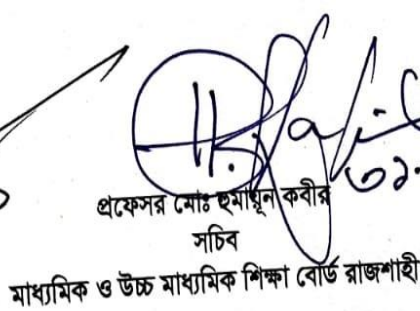 ৩১.
প্রফেসর মোঃ হুমায়ূন কবীর
সচিব
মাধ্যমিক ও উচ্চ মাধ্যমিক শিক্ষা বোর্ড রাজশাহী